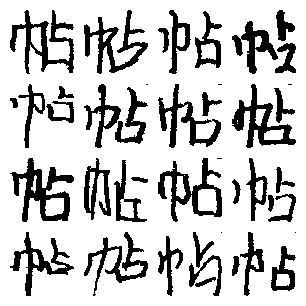 帖帖帖帖
帖帖帖帖
帖帖帖帖
帖帖帖帖